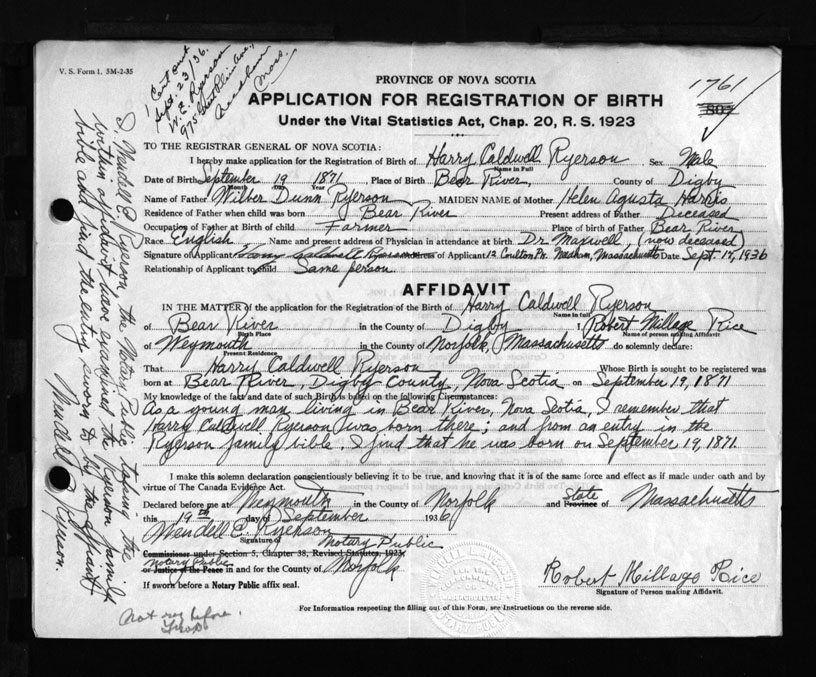 V. S. Form 1. 5M-2-35
1 Cert out
Sept. 23/36.
W. E. Ryerson
975
Mass.
1761
PROVINCE OF NOVA SCOTIA
APPLICATION FOR REGISTRATION OF BIRTH
Under the Vital Statistics Act, Chap. 20, R. S. 1923
TO THE REGISTRAR GENERAL OF NOVA SCOTIA:
I hereby make application for the Registration of Birth of Harry Caldwell Ryerson Sex Male
Name in Full
Date of Birth September 19 1871, Place of Birth Bear River, County of Digby
Month Day Year
Name of Father Wilber Dunn Ryerson MAIDEN NAME of Mother Helen Agusta Harris
Residence of Father when child was born Bear River Present address of Father Deceased
Occupation of Father at Birth of child Farmer Place of birth of Father Bear River
Race English Name and present address of Physician in attendance at birth Dr. Maxwell, (now deceased)
Signature of Applicant Harry Caldwell Ryerson Address of Applicant 12 Coulton Pk. Needham, Massachusetts Date Sept. 17, 1936
Relationship of Applicant to child Same person.
AFFIDAVIT
IN THE MATTER of the application for the Registration of the Birth of Harry Caldwell Ryerson
Name in full
of Bear River in the County of Digby I, Robert Millage Rice
Birth Place Name of person making Affidavit
of Weymouth in the County of Norfolk, Massachusetts do solemnly declare:
Present Residence
That Harry Caldwell Ryerson Whose Birth is sought to be registered was
born at Bear River, Digby County, Nova Scotia on September 19, 1871
My knowledge of the fact and date of such Birth is based on the following Circumstances:
As a young man living in Bear River, Nova Scotia, I remember that
Harry Caldwell Ryerson was born there; and from an entry in the
Ryerson family bible, I find that he was born on September 19, 1871.
I make this solemn declaration conscientiously believing it to be true, and knowing that it is of the same force and effect as if made under oath and by
virtue of The Canada Evidence Act.
Declared before me at Weymouth in the County of Norfolk and State Province of Massachusetts
this 19th day of September 1936
Wendell E. Ryerson
Signature of Notary Public
Commissioner under Section 5, Chapter 38, Revised Statutes, 1923
Notary Public
or Justice of the Peace in and for the County of Norfolk
If sworn before a Notary Public affix seal.
Robert Millage Rice
Signature of Person making Affidavit.
For Information respecting the filling out of this Form, see Instructions on the reverse side.
I, Wendell E. Ryerson the Notary Public taking the
within affidavit have examined the Ryerson family
bible and find the entry sworn to by the affiant
Wendell E. Ryerson.
Not reg before.